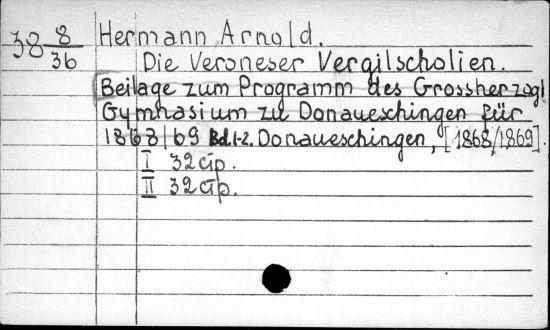 38 8/36 Hermann Arnold.
Die Veroneser Vergilscholien.
[Beilage zum Programm des Grossherzogl
Gymnasium zu Donaueschingen für
1868/69 Bd.1-2. Donaueschingen, [1868/1869].
I 32 стр.
II 32 стр.